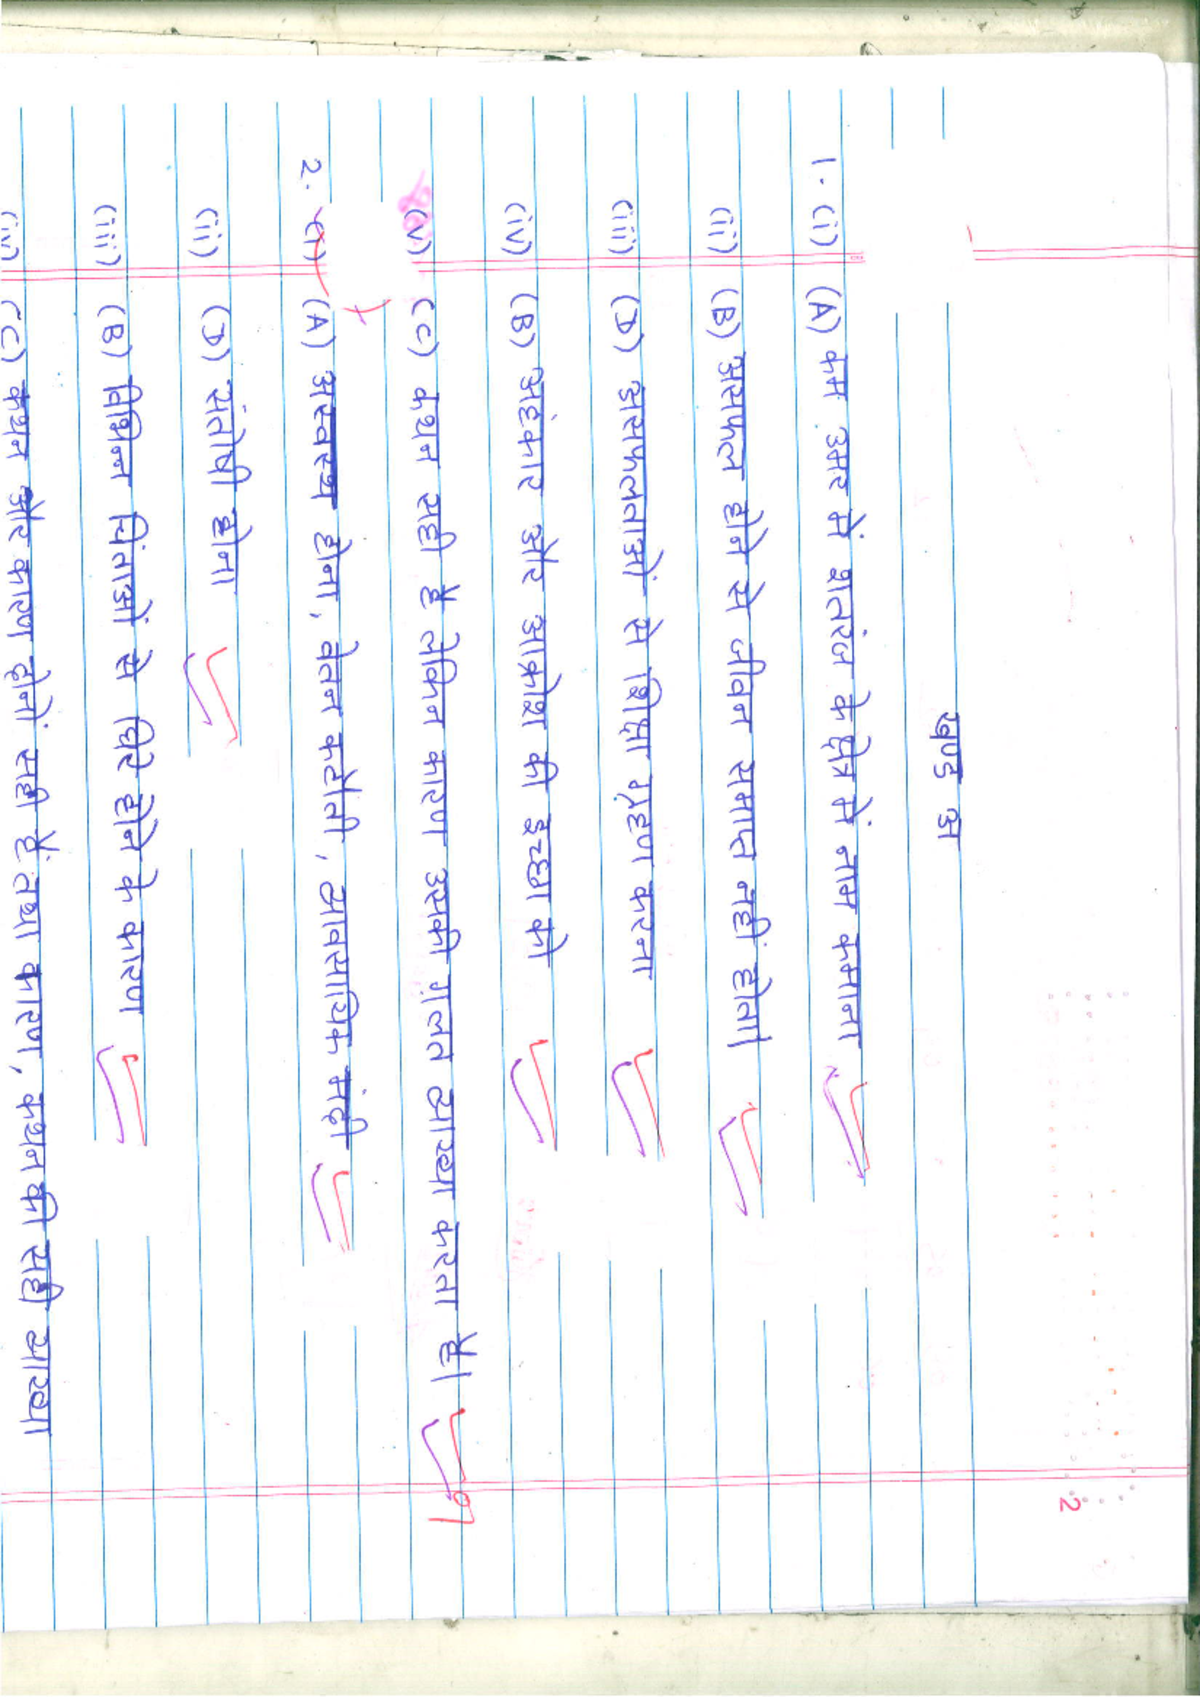 2
खण्ड अ
1. (i) (A) कम उमर में शतरंज के क्षेत्र में नाम कमाना
(ii) (B) असफल होने से जीवन समाप्त नहीं होता।
(iii) (D) असफलताओं से शिक्षा ग्रहण करना
(iv) (B) अहंकार और आक्रोश की इच्छा को
(v) (C) कथन सही है लेकिन कारण उसकी गलत व्याख्या करता है।
2. (i) (A) अस्वस्थ होना, वेतन कटौती, व्यावसायिक मंदी
(ii) (D) संतोषी होना
(iii) (B) विभिन्न चिंताओं से घिरे होने के कारण
(iv) (C) कथन और कारण दोनों सही हैं तथा कारण, कथन की सही व्याख्या